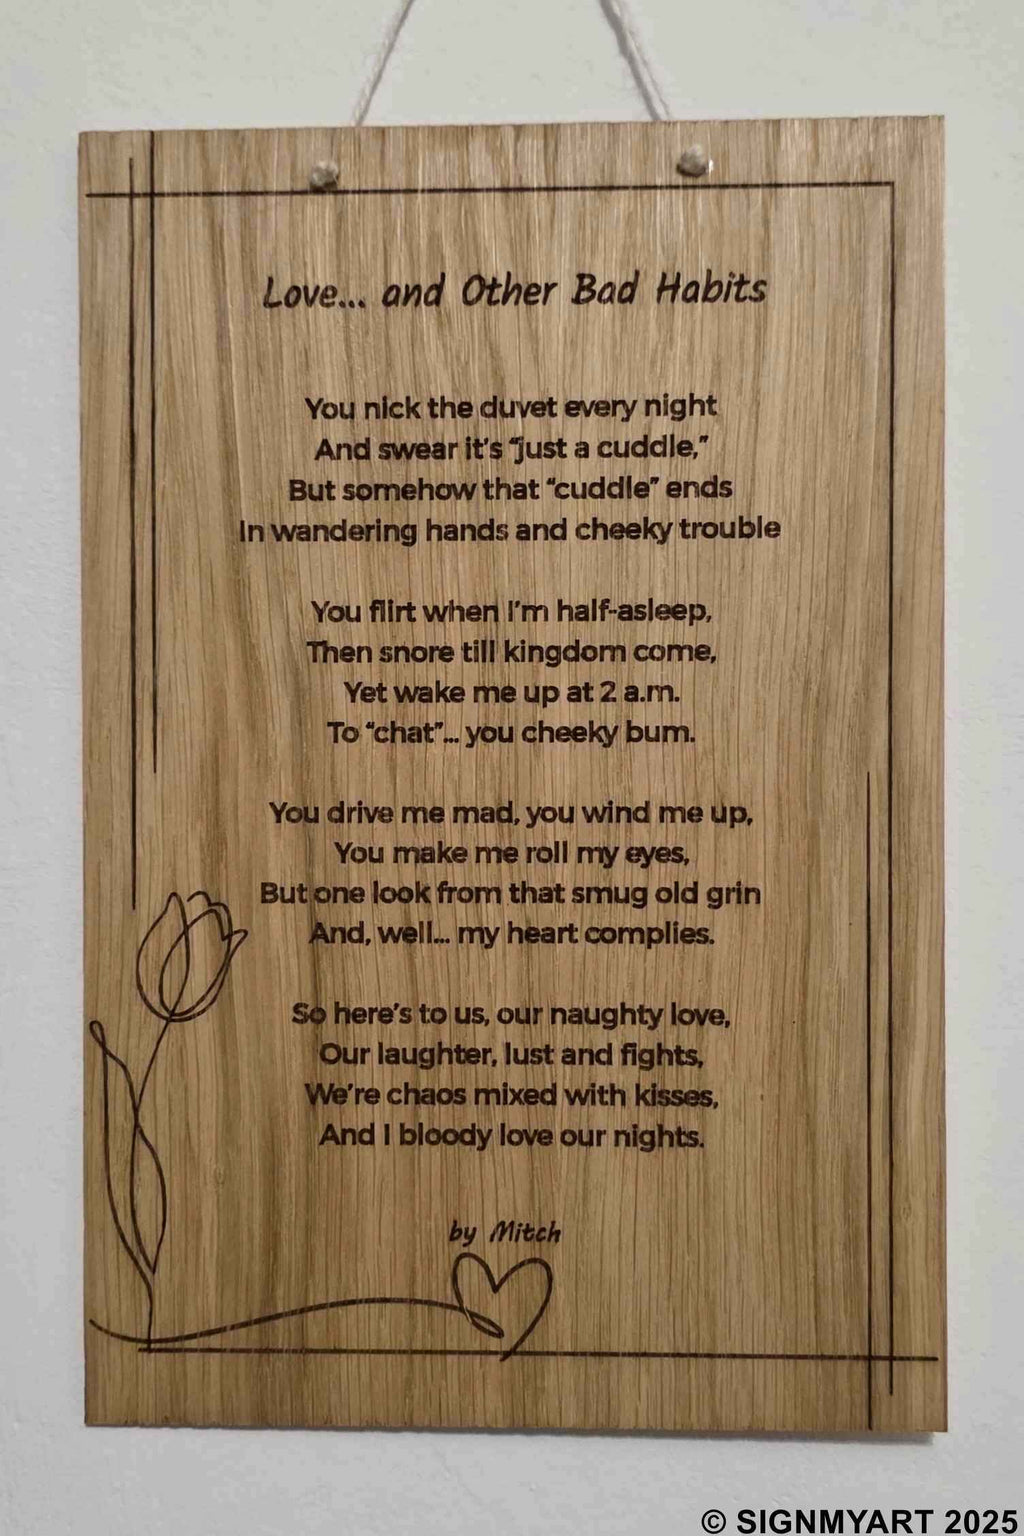 Love... and Other Bad Habits
You nick the duvet every night
And swear it's “just a cuddle,”
But somehow that “cuddle” ends
In wandering hands and cheeky trouble
You flirt when I'm half-asleep,
Then snore till kingdom come,
Yet wake me up at 2 a.m.
To “chat”... you cheeky bum.
You drive me mad, you wind me up,
You make me roll my eyes,
But one look from that smug old grin
And, well... my heart complies.
So here's to us, our naughty love,
Our laughter, lust and fights,
We're chaos mixed with kisses,
And I bloody love our nights.
by Mitch
© SIGNMYART 2025